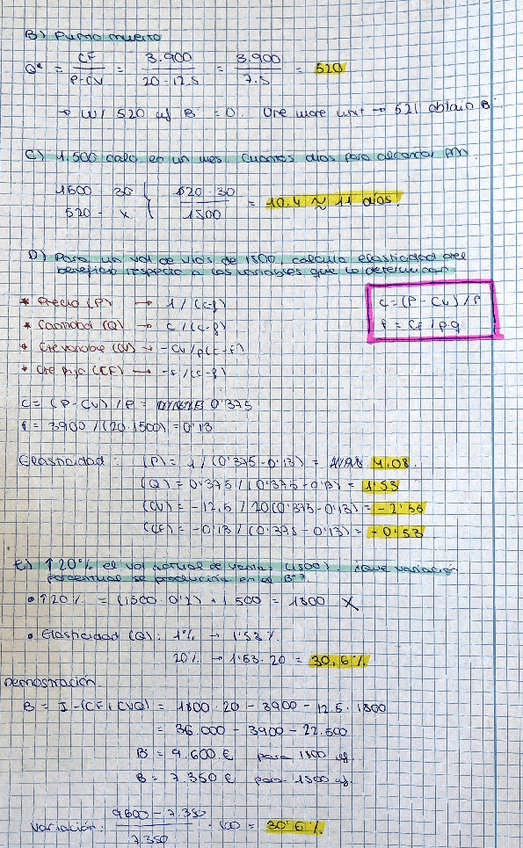 B) Punto muerto
Q* = CF / P-CV = 3.900 / 20-12.5 = 3.900 / 7.5 = 520
→ W/ 520 uf B = 0. One more unit → 521 obtain B
C) 1.500 cada en un mes. Cuántos días para alcanzar PM.
1500 30 { 520·30 / 1500 = 10.4 ≈ 11 días.
520 - x
D) Para un vol de vtas de 1500, calcula elasticidad del
beneficio respecto a las variables que lo determinan
* Precio (P) → 1/(c-f)
* Cantidad (Q) → c/(c-f)
* Cte variable (CV) → -CV/p(c-f)
* Cte fijo (CF) → -f/(c-f)
c=(P-CV)/P
f = CF/p·q
c = (P-CV)/P = 0'375
f = 3900/(20·1500) = 0'13
Elasticidad: (P) = 1/(0'375-0'13) = 4,08
(Q) = 0'375/(0'375-0'13) = 1'53
(CV) = -12,5/20(0'375-0'13) = -2'55
(CF) = -0'13/(0'375-0'13) = -0'53
E) ↑20% el vol actual de ventas (1500). ¿Que variación
porcentual se produciría en el Bº?
• ↑20% = (1500·0'2) + 1500 = 1800 X
• Elasticidad (Q): 1% → 1'53%
20% → 1'53·20 = 30,6%
Demostración
B = I-(CF+CVQ) = 1800·20 - 3900 - 12.5·1800
= 36 000 - 3900 - 22.500
B = 9.600 € para 1800 uf.
B = 7.350 € para 1500 uf.
Variación: 9600-7.350 / 7.350 · 100 = 30'6%